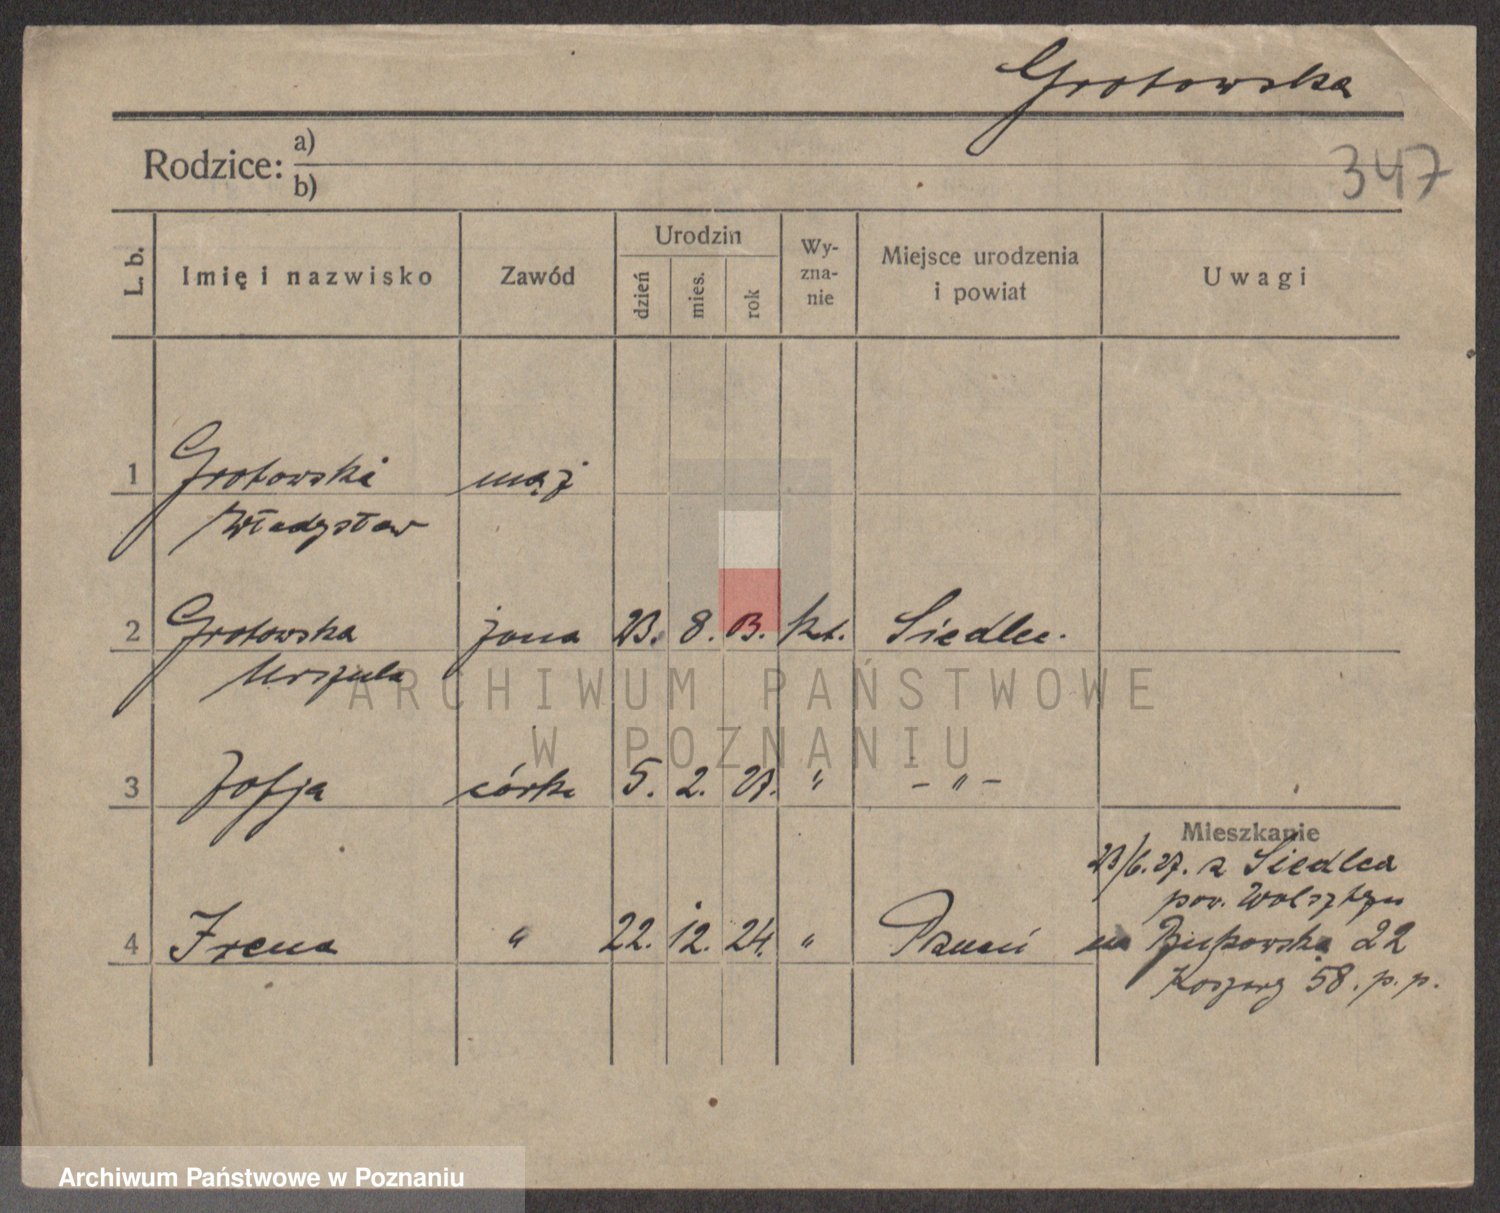 Grotowska
347
Rodzice: a)
b)
L. b. Imię i nazwisko Zawód Urodzin dzień mies. rok Wy-zna-nie Miejsce urodzenia i powiat Uwagi
1 Grotowski mąż
Władysław
2 Grotowska żona 23. 8. 03. kat. Siedlec.
Urszula
ARCHIWUM PAŃSTWOWE
W POZNANIU
3 Zofja córka 5. 2. 27. " - " -
Mieszkanie
23/6.27. z Siedlca
pow. Wolsztyn
4 Irena " 22. 12. 24. " Poznań na Bukowska 22
Koszary 58. p. p.
Archiwum Państwowe w Poznaniu